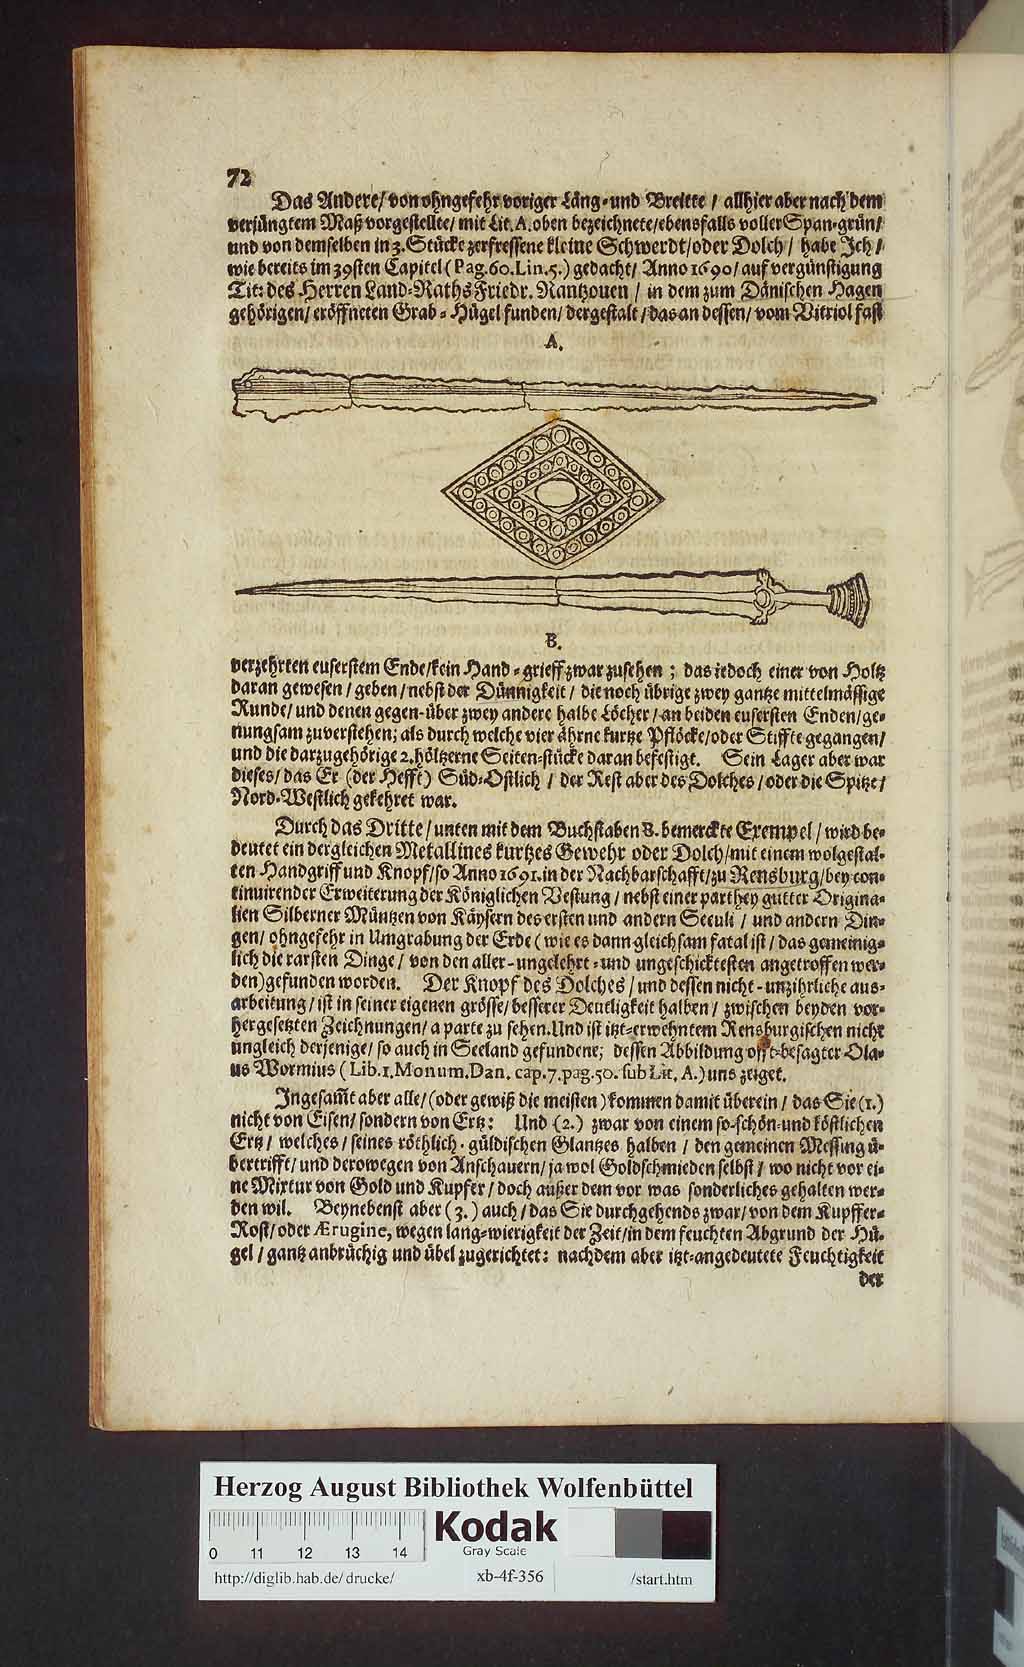 72
Das Andere/ von ohngefehr voriger Läng-und Breitte / allhier aber nach dem
verjüngtem Maß vorgestellte/ mit Lit. A. oben bezeichnete/ebensfalls voller Span-grün/
und von demselben in 3. Stücke zerfressene kleine Schwerdt/oder Dolch/ habe Ich/
wie bereits im 39sten Capitel (Pag. 60. Lin. 5.) gedacht/ Anno 1690/ auf vergünstigung
Tit: des Herren Land-Raths Friedr. Rantzouen / in dem zum Dänischen Hagen
gehörigen/ eröffneten Grab-Hügel funden/ dergestalt/das an dessen/ vom Vitriol fast
A.
B.
verzehrten euserstem Ende/kein Hand-grieff zwar zusehen; das jedoch einer von Holtz
daran gewesen/ geben/ nebst der Dünnigkeit/ die noch übrige zwey gantze mittelmässige
Runde/ und denen gegen-über zwey andere halbe Löcher/ an beiden eusersten Enden/ ge-
nungsam zuverstehen; als durch welche vier ährne kurtze Pflöcke/oder Stiffte gegangen/
und die darzugehörige 2. höltzerne Seiten-stücke daran befestigt. Sein Lager aber war
dieses/ das Er (der Hefft) Süd-Ostlich / der Rest aber des Dolches/ oder die Spitze/
Nord-Westlich gekehret war.
Durch das Dritte/ unten mit dem Buchstaben B. bemerckte Exempel/ wird be-
deutet ein dergleichen Metallines kurtzes Gewehr oder Dolch/mit einem wolgestal-
ten Handgriff und Knopf/ so Anno 1691. in der Nachbarschafft/zu Rensburg/bey con-
tinuirender Erweiterung der Königlichen Vestung/ nebst einer parthey gutter Origina-
lien Silberner Müntzen von Käysern des ersten und andern Seculi / und andern Din-
gen/ ohngefehr in Umgrabung der Erde (wie es dann gleichsam fatal ist/ das gemeinig-
lich die rarsten Dinge/ von den aller-ungelehrt-und ungeschicktesten angetroffen wer-
den) gefunden worden. Der Knopf des Dolches/ und dessen nicht-unzihrliche aus-
arbeitung/ ist in seiner eigenen grösse/ besserer Deutligkeit halben/ zwischen beyden vor-
hergesetzten Zeichnungen/ a parte zu sehen. Und ist itzt-erwehntem Rensburgischen nicht
ungleich derjenige/ so auch in Seeland gefundene; dessen Abbildung offt-besagter Ola-
us Wormius (Lib. 1. Monum. Dan. cap. 7. pag. 50. sub Lit. A.) uns zeiget.
Ingesam̃t aber alle/ (oder gewiß die meisten) kommen damit überein/ das Sie (1.)
nicht von Eisen/ sondern von Ertz: Und (2.) zwar von einem so-schön-und köstlichen
Ertz/ welches/ seines röthlich-güldischen Glantzes halben / den gemeinen Messing ü-
bertrifft/ und derowegen von Anschauern/ ja wol Goldschmieden selbst/ wo nicht vor ei-
ne Mixtur von Gold und Kupfer/ doch außer dem vor was sonderliches gehalten wer-
den wil. Beynebenst aber (3.) auch/ das Sie durchgehends zwar/ von dem Kupffer-
Rost/ oder Ærugine, wegen lang-wierigkeit der Zeit/in dem feuchten Abgrund der Hü-
gel/ gantz anbrüchig und übel zugerichtet: nachdem aber itzt-angedeutete Feuchtigkeit
der
Herzog August Bibliothek Wolfenbüttel
Kodak
Gray Scale
0 11 12 13 14
http://diglib.hab.de/drucke/ xb-4f-356 /start.htm